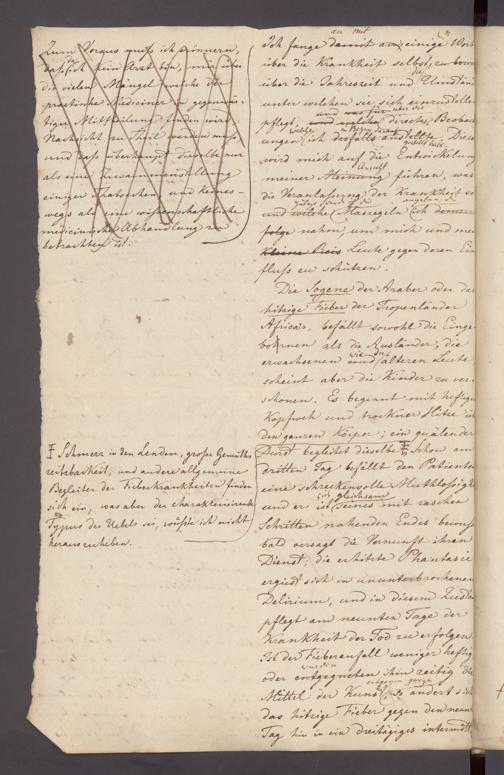 Zum Voraus muß ich erinnern,
daß ich kein Arzt bin, mir über
die vielen Mängel welche der
practische Mediciner in gegenwär-
tiger Mittheilung finden wird
Nachsicht zu Theil werden muß
und daß überhaupt dieselbe nur
als eine Zusammenstellung
einiger Thatsachen und keines-
wegs als eine wissenschaftliche
medicinische Abhandlung zu
betrachten ist.
Ŧ Schmerz in den Lenden, große Gemüths
reitzbarkeit, und andere allgemeine
Begleiter der Fieberkrankheiten finden
sich ein, was aber der characterisirende
Typus des Uebels sei, wüßte ich nicht
herauszuheben.
an mit
Ich fange damit an einige Wort
über die Krankheit selbst, zu
über die Jahreszeit und die Umstän
unter welchen sie sich einzustellen
pflegt, und
welche ich desfalls anstellte. Diese
wird mich auf die Entwickelung
meiner Meinung führen, was
die Veranlassung der Krankheit se
und welche Maasregeln ich
folge nahm, um mich und mei
Leute gegen deren Ein
fluß zu schützen.
Die Sogene der Araber oder das
hitzige Fieber der Tropenländer
Africa's, befällt sowohl die Einge
bohrnen als die Ausländer, die
erwachsenen wie die älteren Leute
scheint aber die Kinder zu ver
schonen. Es begannt mit heftige
Kopfweh und trockner Hitze in
den ganzen Körper; ein quälender
Durst begleitet dieselbe Ŧ Schon am
dritten Tag befällt den Patienten
eine schreckenvolle Muthlosigk
und er ist sich gleichsam seines mit raschen
Schritten nahenden Endes bewuß
bald versagt die Vernunft ihren
Dienst; die erhitzte Phantasie
ergiebt sich in ununterbrochenen
Delirium, und in diesem Zusta
pflegt am neunten Tage der
Krankheit der Tod zu erfolgen
Ist der Fieberanfall weniger heftig
oder wurden ihm zeitig die
Mittel der Kunst so ändert sich
das hitzige Fieber gegen den neun
Tag hin in ein dreitägiges intermitt